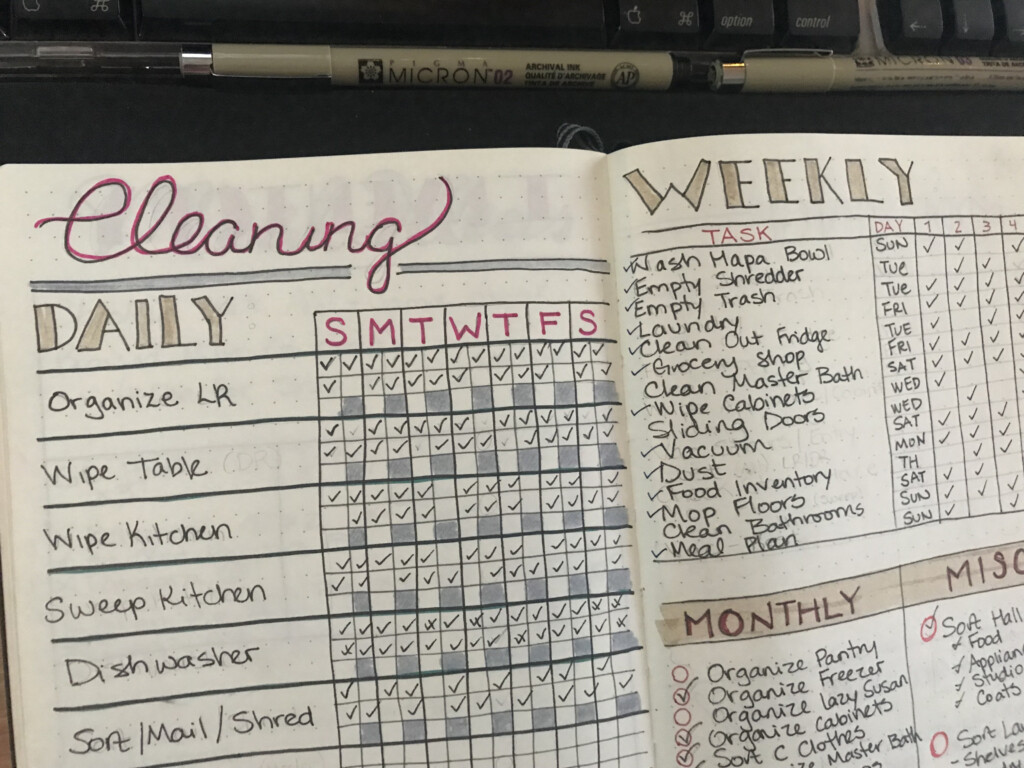 ⌘
⌘
option
control
←
↓
PIGMA
MICRON 02
ARCHIVAL INK
QUALITÉ D'ARCHIVAGE
TINTA DE ARCHIVO
AP
MICRON
Cleaning
DAILY
S M T W T F S
Organize LR
Wipe Table
Wipe Kitchen
Sweep Kitchen
Dishwasher
Sort/Mail/Shred
WEEKLY
TASK DAY 1 2 3 4
Wash Mapa Bowl SUN
Empty Shredder TUE
Empty Trash TUE
Laundry FRI
Clean Out Fridge TUE
Grocery Shop FRI
Clean Master Bath SAT
Wipe Cabinets WED
Sliding Doors WED
Vacuum SAT
Dust MON
Food Inventory TH
Mop Floors SAT
Clean Bathrooms SUN
Meal Plan SUN
MONTHLY
Organize Pantry
Organize Freezer
Organize lazy Susan
Organize Cabinets
Sort C Clothes
Master Bath
MISC
Sort Hall
Food
Studio
Coats
Shelves